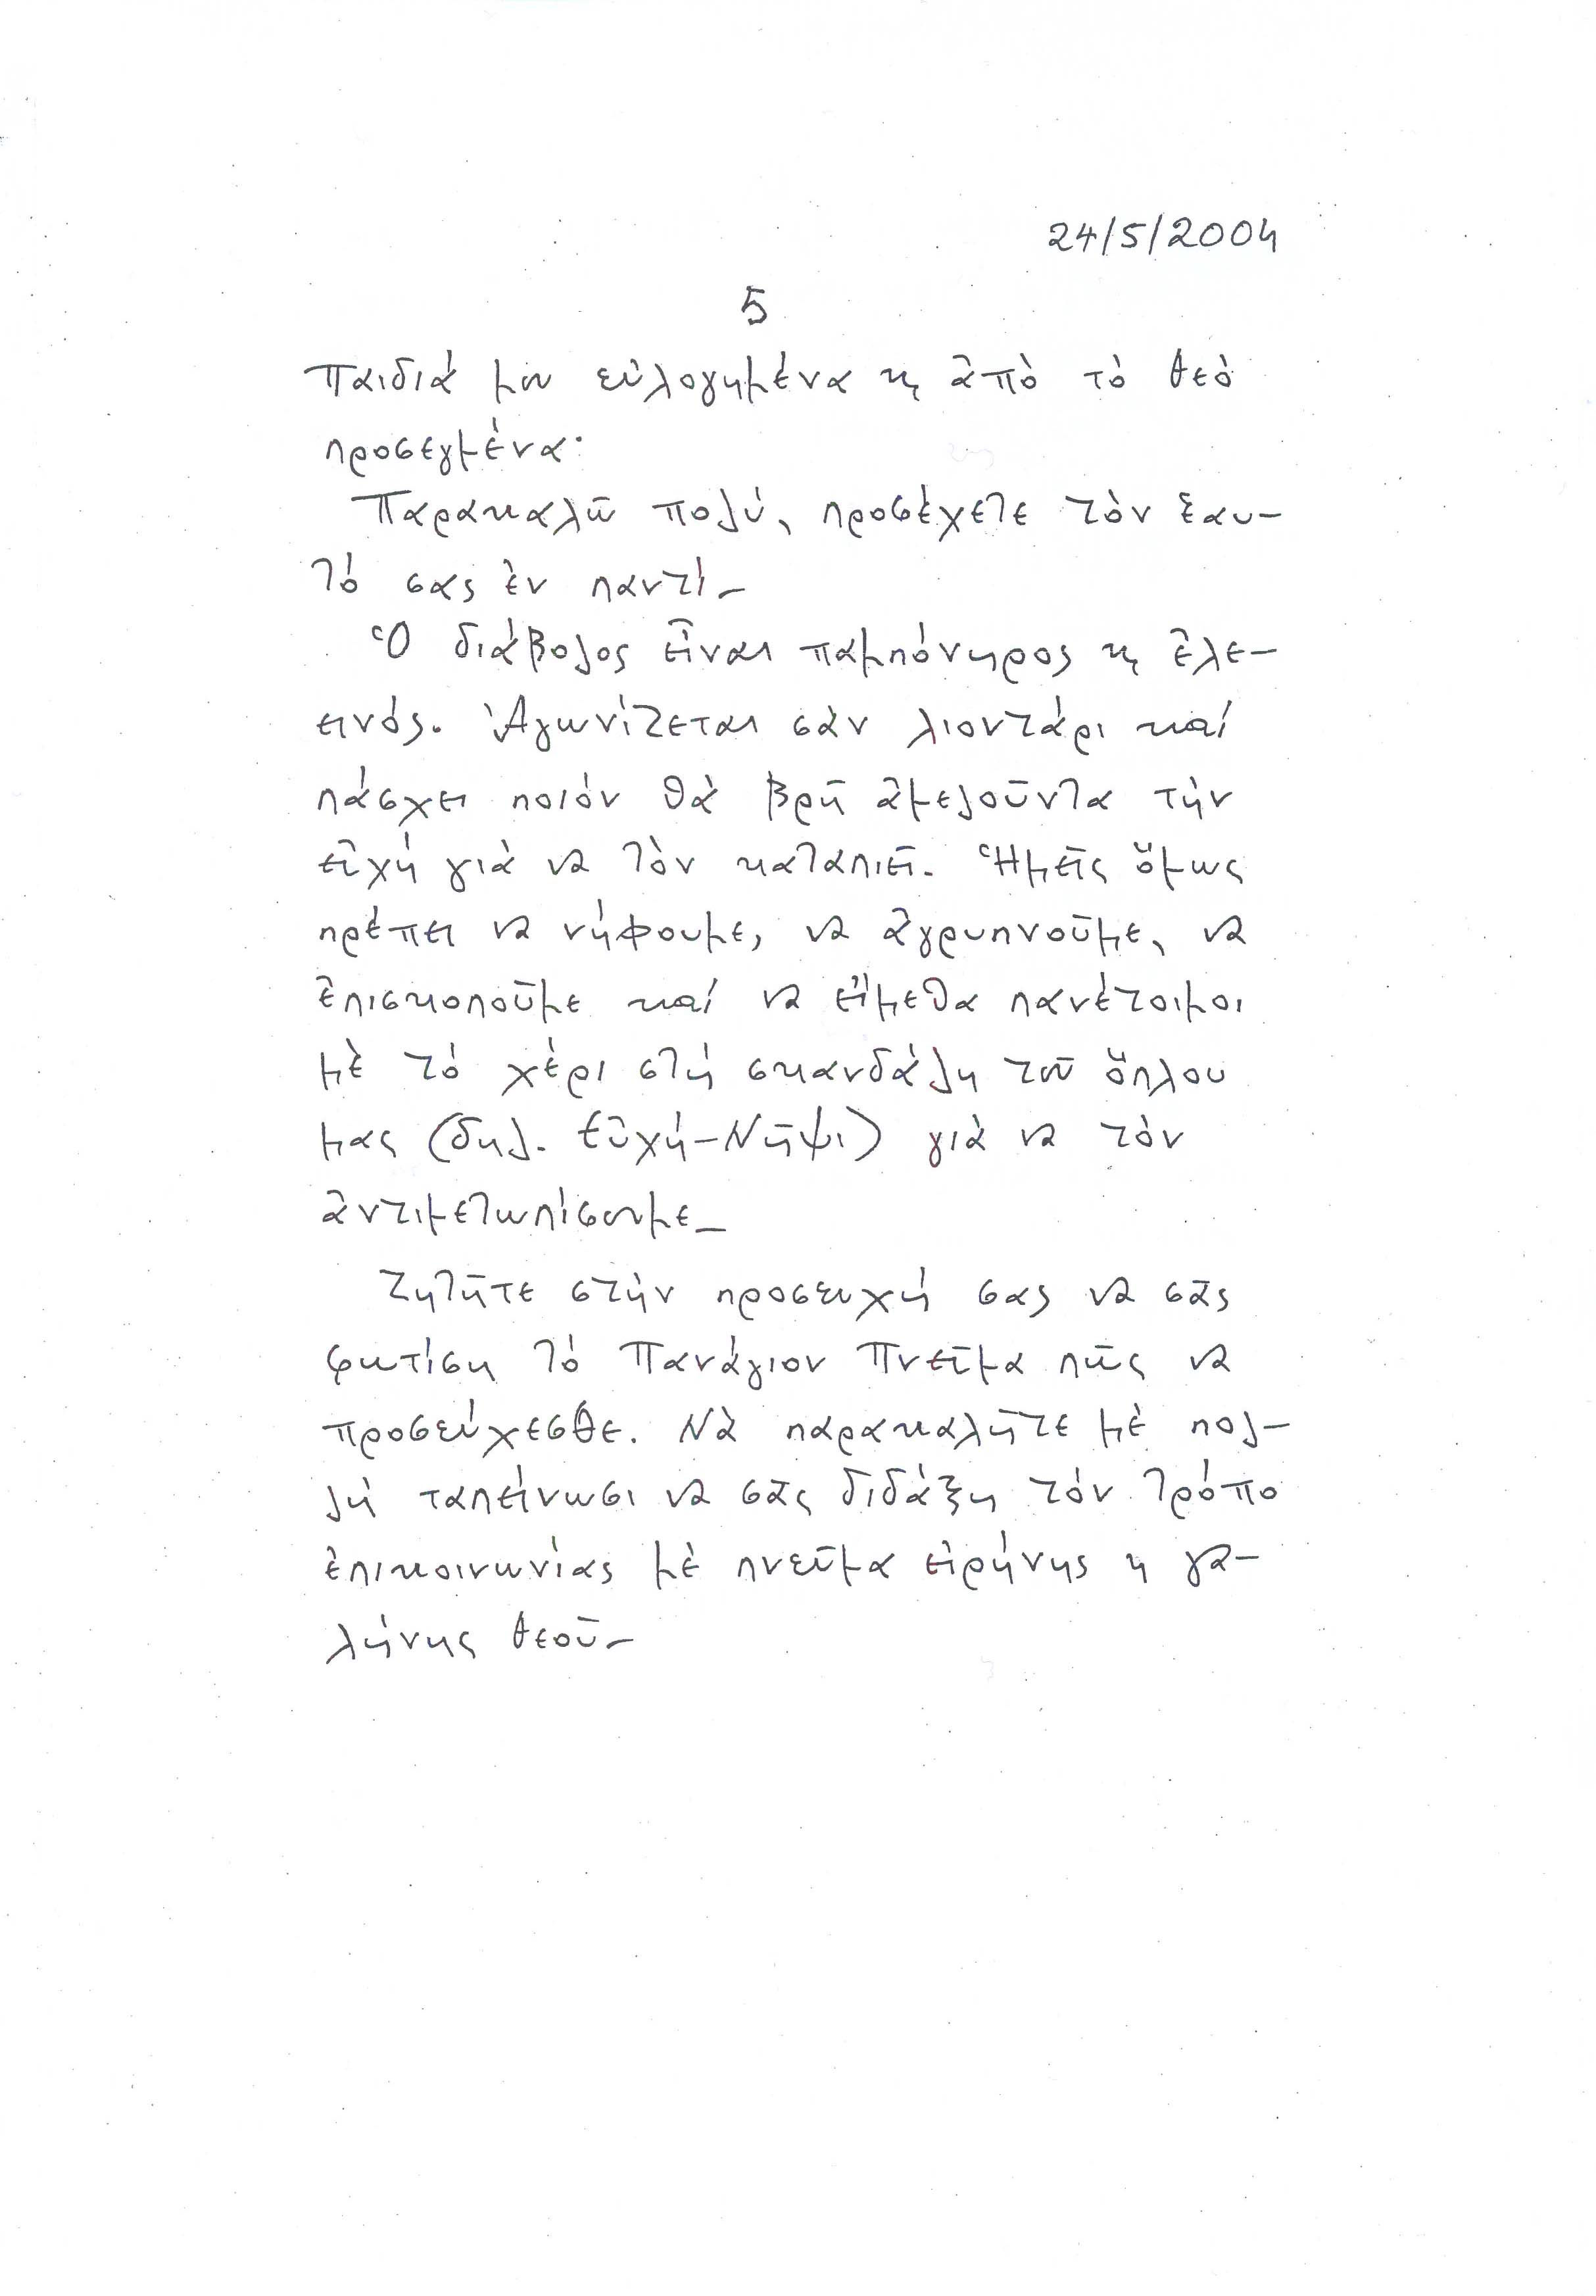 24/5/2004
5
Παιδιά μου εὐλογημένα κ ἀπὸ τὸ θεὸ
προσεγμένα·
Παρακαλῶ πολύ, προσέχετε τὸν ἑαυ-
τό σας ἐν παντί_
Ὁ διάβολος εἶναι παμπόνηρος κ ἐλε-
εινός. Ἀγωνίζεται σὰν λιοντάρι καί
πάσχει ποιόν θὰ βρῆ ἀμελοῦντα τὴν
εὐχή γιὰ να τὸν καταπιεῖ. Ἡμεῖς ὅμως
πρέπει να νήφουμε, να ἀγρυπνοῦμε, να
ἐπισκοποῦμε καί να εἴμεθα πανέτοιμοι
μὲ τό χέρι στή σκανδάλη τοῦ ὅπλου
μας (δηλ. Εὐχή-Νῆψι) γιὰ να τὸν
ἀντιμετωπίσουμε_
Ζητῆτε στὴν προσευχή σας να σᾶς
φωτίση τό Πανάγιον Πνεῦμα πῶς να
προσεύχεσθε. Νὰ παρακαλῆτε μὲ πολ-
λή ταπείνωσι να σᾶς διδάξη τόν τρόπο
ἐπικοινωνίας μὲ πνεῦμα εἰρήνης κ γα-
λήνης θεοῦ_